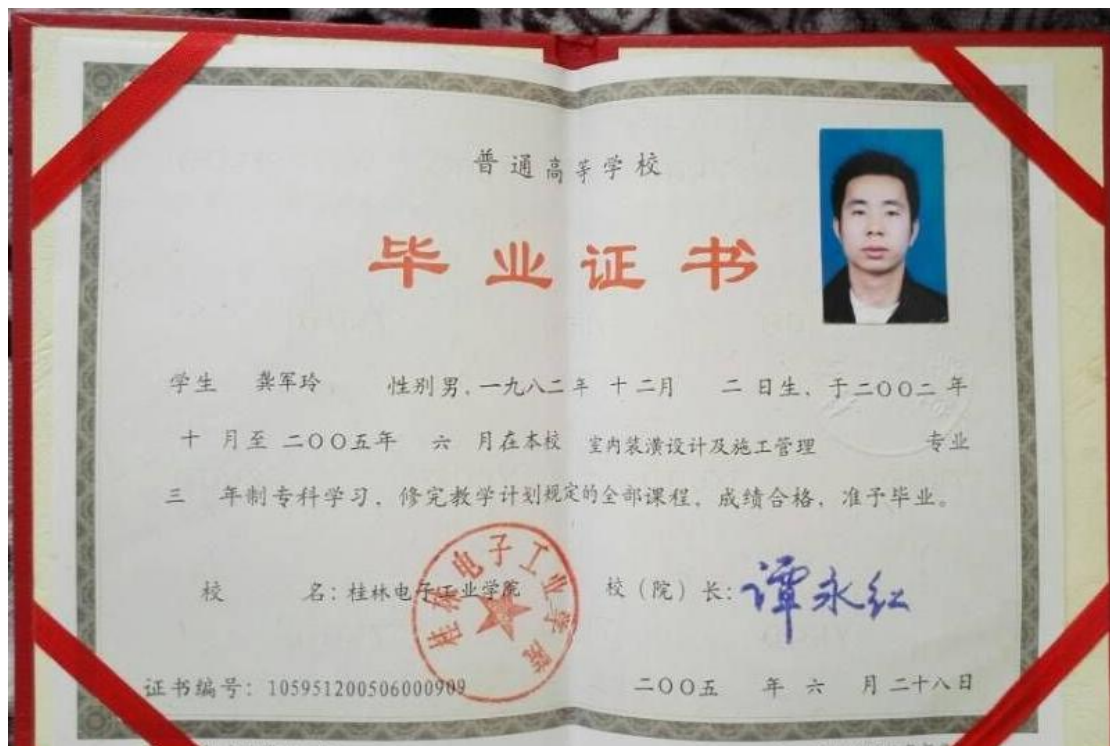 普通高等学校
毕业证书
学生 龚军玲 性别男，一九八二年 十二月 二 日生，于二〇〇二 年
十 月至 二〇〇五年 六 月在本校 室内装潢设计及施工管理 专业
三 年制专科学习，修完教学计划规定的全部课程，成绩合格，准予毕业。
校 名：桂林电子工业学院 校（院）长：谭永红
桂林电子工业学院
证书编号：105951200506000909 二〇〇五 年 六 月 二十八日